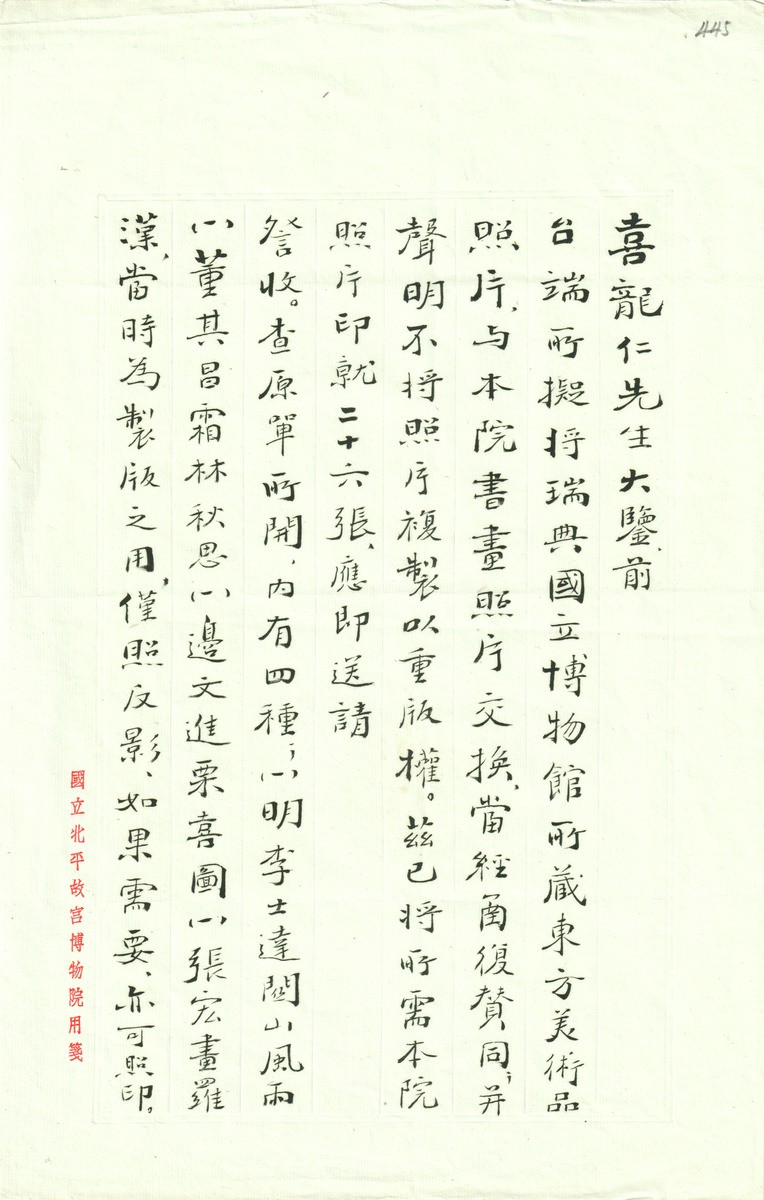 445
喜龍仁先生大鑒、前
台端所擬将瑞典國立博物館所藏東方美術品
照片、与本院書畫照片交换、當經函復賛同、并
聲明不将照片複製以重版權。茲已将所需本院
照片印就二十六張、應即送請
詧收。查原單所開、内有四種、㈠明李士達關山風雨
㈠董其昌霜林秋思㈠邊文進栗喜圖㈠張宏畫羅
漢、當時為製版之用、僅照反影、如果需要、亦可照印。
國立北平故宫博物院用箋